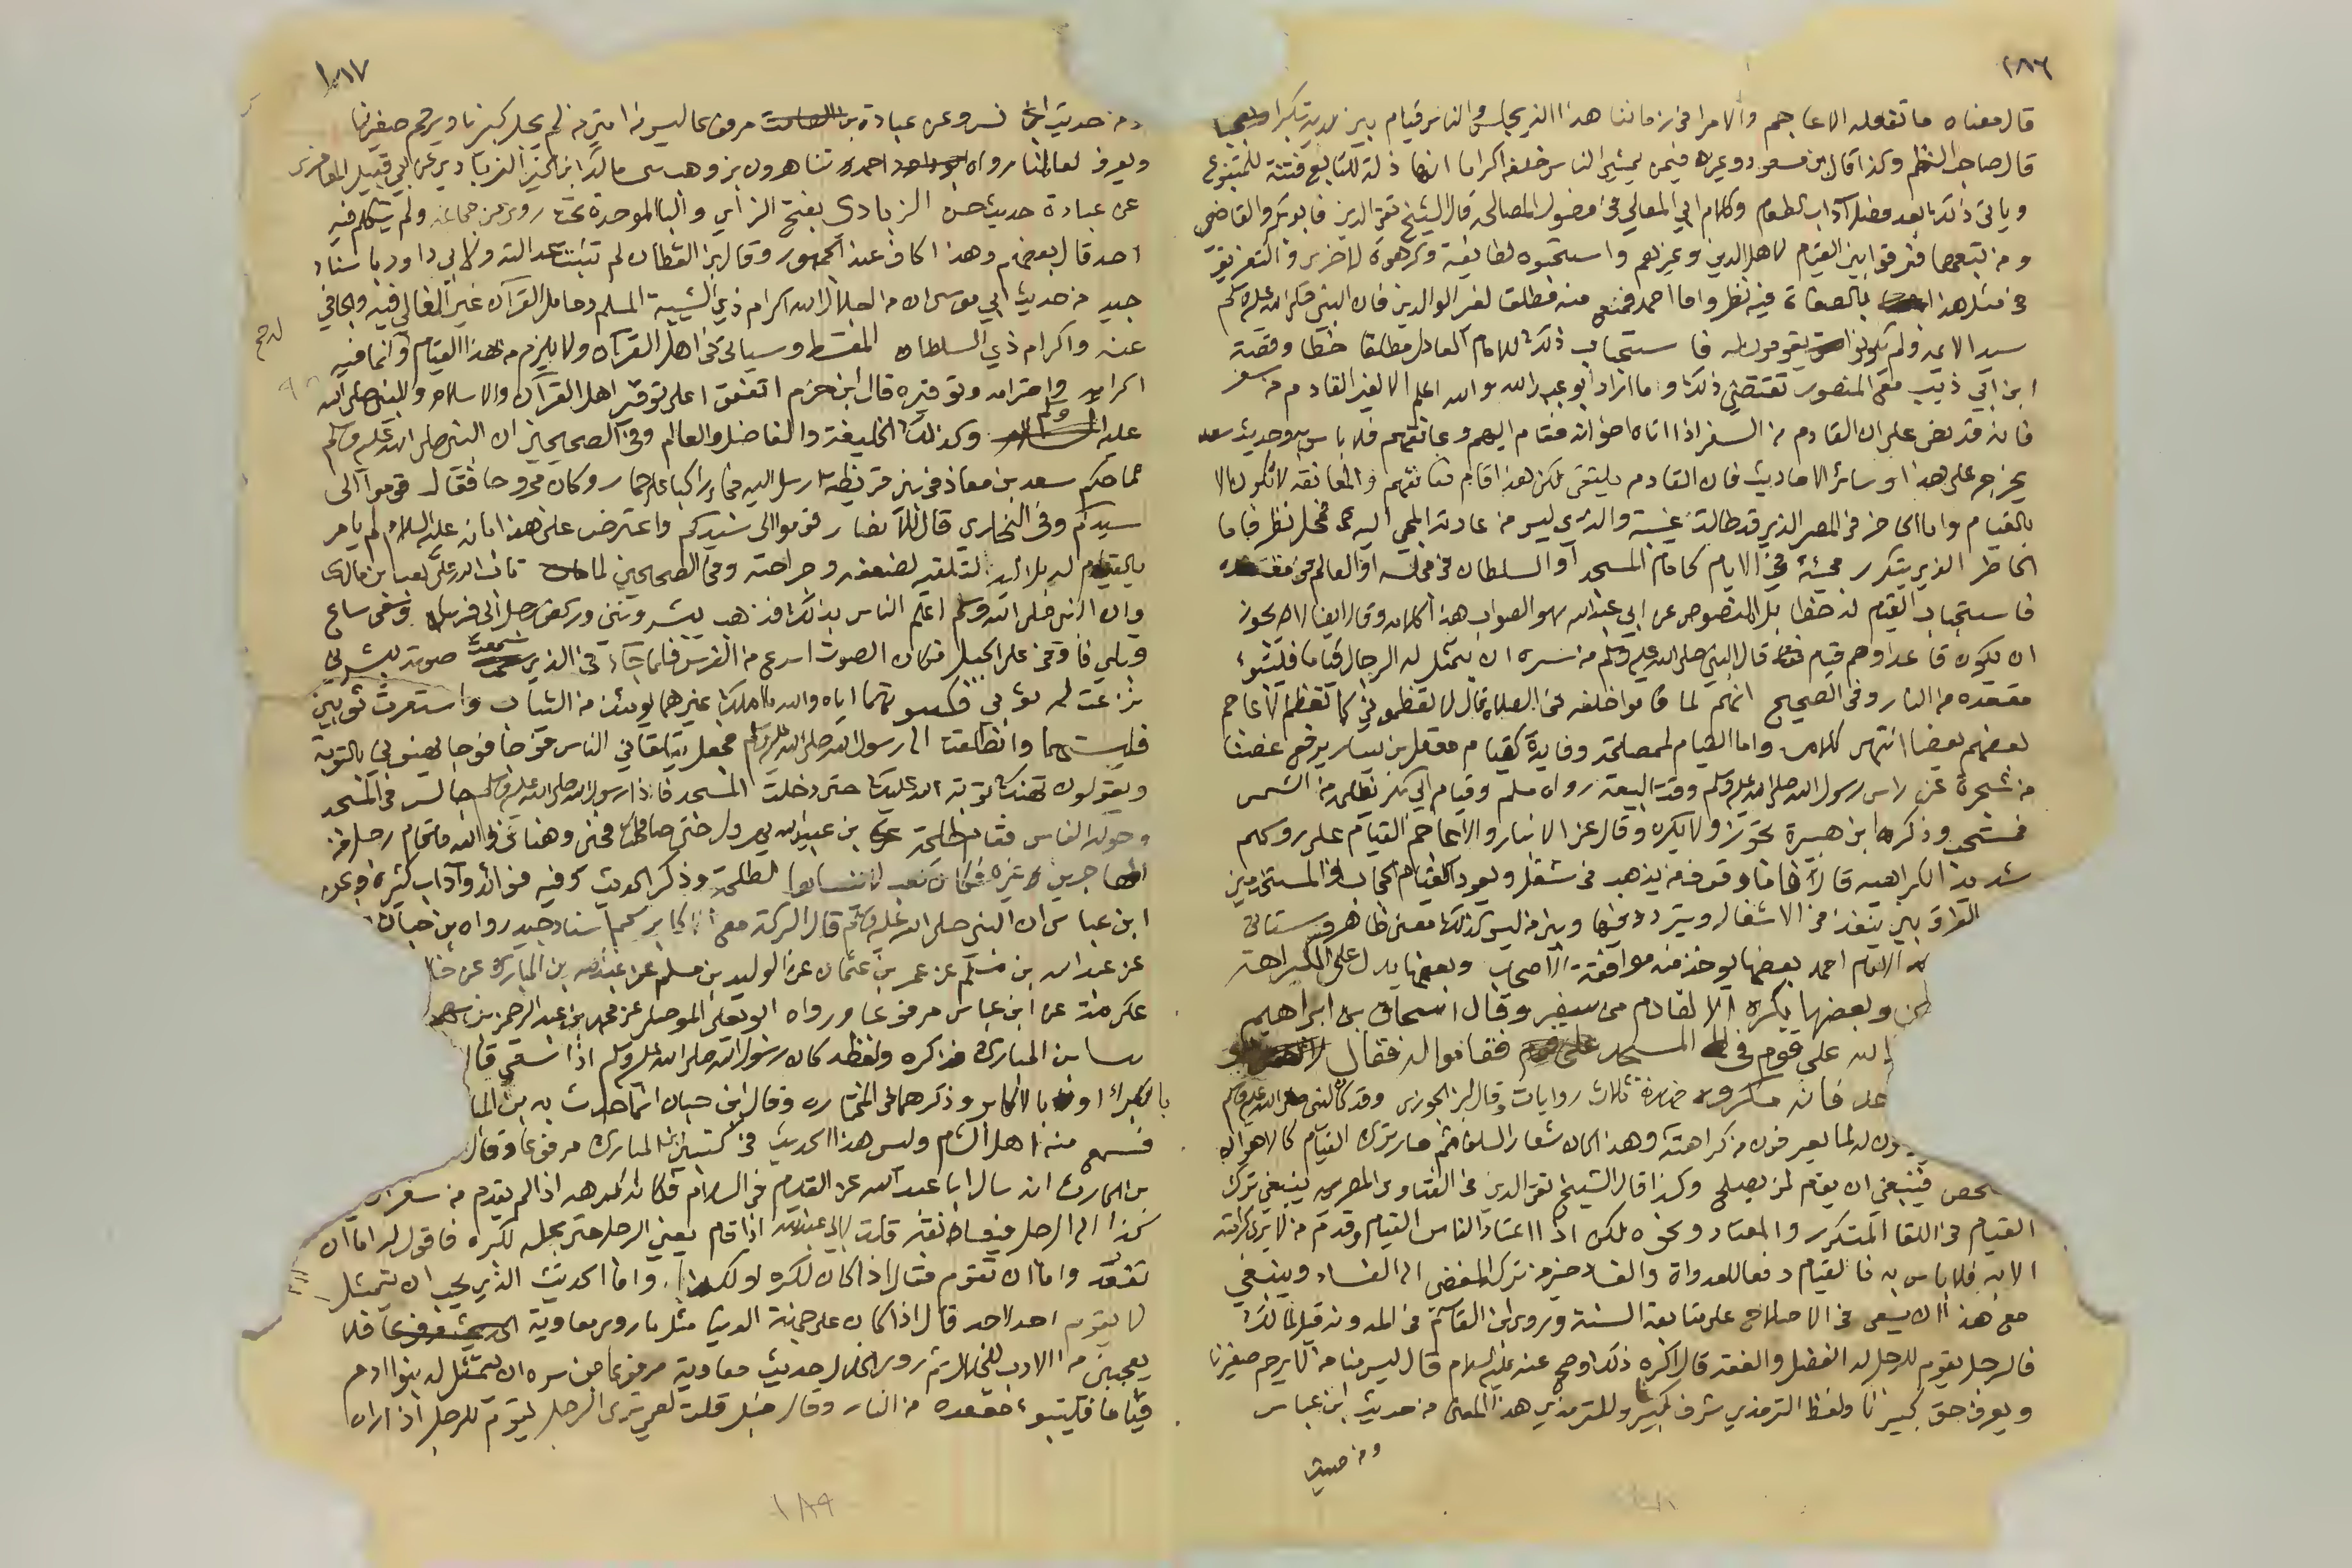 ١٨٦
قال معناه ما تفعله الاعاجم والامرا في زماننا هذا الذي يجلس والناس قيام بين يديه تكبرا وتجبرا
قال صاحب النظم وكذا قال ابن مسعود وغيره فيمن يمشي الناس خلفه اكراما انها ذلة للتابع فتنة للمتبوع
وياتي ذلك بعد فصل آداب الطعام وكلام ابي المعالي في فصول المصالحة قال الشيخ تقي الدين فابو بكر والقاضي
ومن تبعهما فرقوا بين القيام لاهل الدين وغيرهم واستحبوه لطائفة وكرهوه لاخرى والتفريق
في مثل هذا بالصفات فيه نظر واما احمد فمنع منه مطلقا لغير الوالدين فان النبي صلى الله عليه وسلم
سيد الائمة ولم يكونوا يقومون له فاستحباب ذلك للامام العادل مطلقا خطا وقصة
ابن ابي ذيب مع المنصور تقتضي ذلك وما اراد ابو عبد الله والله اعلم الا لغير القادم من سفر
فانه قد نص على ان القادم من السفر اذا اتاه اخوانه فقام اليهم وعانقهم فلا باس به وحديث سعد
يخرج على هذا وسائر الاحاديث فان القادم يتلقى لكن هذا قام فعانقهم والمعانقة لا تكون الا
بالقيام واما الحاضر في المصر الذي قد طالت غيبته والذي ليس من عادته المجي اليه فمحل نظر فاما
الحاضر الذي يتكرر مجيئه في الايام كامام المسجد او السلطان في مجلسه او العالم في مقعده
فاستحباب القيام له خطا بل المنصوص عن ابي عبد الله هو الصواب هذا كلامه وقال ايضا لا يجوز
ان يكون قاعدا وهم قيام قال النبي صلى الله عليه وسلم من سره ان يتمثل له الرجال قياما فليتبوء
مقعده من النار وفي الصحيح انهم لما قاموا خلفه في الصلاة قال لا تعظموني كما تعظم الاعاجم
بعضهم بعضا انتهى كلامه واما القيام لمصلحة وفايدة كقيام معقل بن يسار يرفع غصنا
من شجرة عن راس رسول الله صلى الله عليه وسلم وقت البيعة رواه مسلم وقيام ابي بكر يظله من الشمس
فمستحب وذكر ابن هبيرة يجوز ولا يكره وقال عن الانبار والاعاجم القيام على روسهم
شديد الكراهية قال فاما وقوف من يذهب في شغل ويعود كالقيام الحجاب والمستخدمين
الفرق بين ينفذ في الاشغال ويتردد فيها وبين من ليس كذلك معنى ظاهر وستاتي
الامام احمد بعضها يوخذ منه موافقة الاصحاب وبعضها يدل على الكراهة
وبعضها يكره الا لقادم من سفر وقال اسحاق بن ابراهيم
الله على قوم في المسجد فقاموا له فقال
فانه مكروه ثلاث روايات وقال ابن الجوزي وقد كان النبي صلى الله عليه وسلم
له لما يعرفون من كراهته وهذا كان شعار السلف ثم صار ترك القيام كالاهوان
فينبغي ان يقام لمن يصلح وكذا قال الشيخ تقي الدين في الفتاوى المصرية ينبغي ترك
القيام في اللقا المتكرر والمعتاد ونحوه لكن اذا اعتاد الناس القيام وقدم من لا يرى كرامته
الا به فلا باس به فالقيام دفعا للعداوة والفساد خير من تركه المفضي الى الفساد وينبغي
مع هذا ان يسعى في الاصلاح على متابعة السنة وروى ابن القاسم في المدونة قيل لمالك
فالرجل يقوم للرجل له الفضل والفقه قال اكره ذلك وصح عنه عليه السلام قال ليس منا من لا يرحم صغيرنا
ويعرف حق كبيرنا ولفظ الترمذي شرف كبيرنا وللترمذي هذا المعنى من حديث ابن عباس
ومن حديث
١٨٧
ومن حديث انس وعن عبادة بن مرفوعا ليس منا من لم يجل كبيرنا ويرحم صغيرنا
ويعرف لعالمنا رواه احمد ثنا هارون بن وهب مالك ابن الخير الزبادي عن ابي قبيل المعافري
عن عبادة حديث حسن الزبادي بفتح الزاي والبا الموحدة تحت روى عن جماعة ولم يتكلم فيه
احد قال بعضهم وهذا كاف عند الجمهور وقال ابن القطان لم تثبت عدالته ولابي داود باسناد
جيد من حديث ابي موسى ان من اجلال الله اكرام ذي الشيبة المسلم وحامل القرآن غير الغالي فيه والجافي
عنه واكرام ذي السلطان المقسط وسياتي في اهل القرآن ولا يلزم من هذا القيام وانما فيه
اكرامه واحترامه وتوقيره قال ابن حزم اتفقوا على توقير اهل القرآن والاسلام والنبي صلى الله
عليه وسلم وكذلك الخليفة والفاضل والعالم وفي الصحيحين ان النبي صلى الله عليه وسلم
لما حكم سعد بن معاذ في بني قريظة ارسل اليه فجاء راكبا على حمار وكان مجروحا فقال قوموا الى
سيدكم وفي البخاري قال للانصار قوموا الى سيدكم واعترض على هذا بانه عليه السلام لم يامر
بالقيام له بل اليه لتلقيه لضعفه وجراحته وفي الصحيحين لما تاب الله على كعب بن مالك
وان النبي صلى الله عليه وسلم اعلم الناس بذلك فذهب يبشرونني وركض رجل الي فرسا وسعى ساع
قبلي فاوفى على الجبل فكان الصوت اسرع من الفرس فلما جاءني الذي سمعت صوته يبشرني
نزعت له ثوبي فكسوتهما اياه والله ما املك غيرهما يومئذ من الثياب واستعرت ثوبين
فلبستهما وانطلقت الى رسول الله صلى الله عليه وسلم فجعل يتلقاني الناس فوجا فوجا يهنوني بالتوبة
ويقولون لتهنك توبة الله عليك حتى دخلت المسجد فاذا رسول الله صلى الله عليه وسلم جالس في المسجد
وحوله الناس فقام طلحة بن عبيد الله يهرول حتى صافحني وهناني والله ما قام رجل من
المهاجرين غيره فكان كعب لا ينساها لطلحة وذكر الحديث وفيه فوائد وآداب كثيرة وعن
ابن عباس ان النبي صلى الله عليه وسلم قال البركة مع اكابركم اسناد جيد رواه ابن حبان
عن عبد الله بن مسلم عن عمر بن عثمان عن الوليد بن مسلم عن عبد الله بن المبارك عن خا
عكرمة عن ابن عباس مرفوعا ورواه ابو يعلى الموصلي عن محمد بن عبد الرحمن بن سهم
ابن المبارك فذكره ولفظه كان رسول الله صلى الله عليه وسلم اذا سقى قال
بالكبراء او بالاكابر وذكرهما في المختارة وقال ابن حبان انما حدث به ابن المبا
فسمع منه اهل الشام وليس هذا الحديث في كتب ابن المبارك مرفوعا وقال
بن الحارث انه سال ابا عبد الله عن القيام في السلام فكانه كرهه اذا لم يقدم من سفر
كذا الى الرجل فيعانقه قلت لابي عبد الله اذا قام يعني الرجل حتى يجله لكبره فاقول له اما ان
تقعد واما ان تقوم فقال اذا كان لكبره او لكذا واما الحديث الذي يحب ان يتمثل
لا يقوم احد لاحد قال اذا كان على جهة الدنيا مثل ما روى معاوية فلا
يعجبني من الادب للخلال ثم روى الخلال حديث معاوية مرفوعا من سره ان يتمثل له بنوا ادم
قياما فليتبوء مقعده من النار وقال حنبل قلت لعمي ترى الرجل يقوم للرجل اذا راه
١٨٩